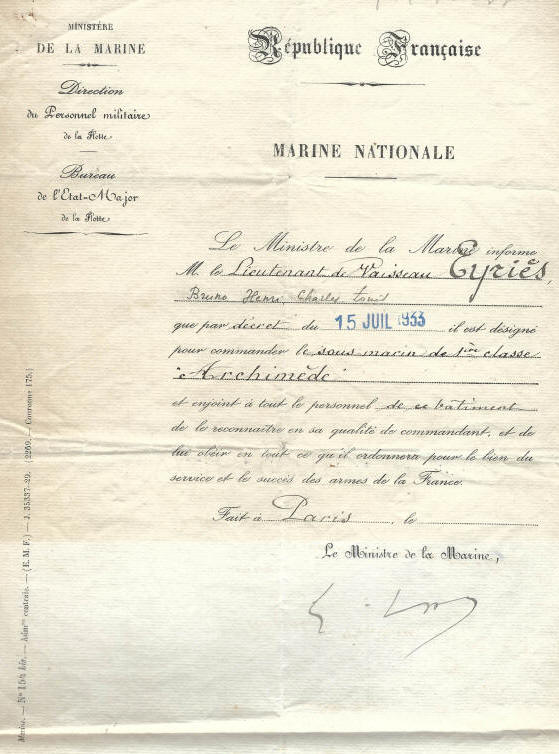 MINISTÈRE
DE LA MARINE
Direction
du Personnel militaire
de la Flotte
Bureau
de l'Etat-Major
de la Flotte
République Française
MARINE NATIONALE
Le Ministre de la Marine informe
M. le Lieutenant de Vaisseau Eyriès,
Bruno Henri, Charles Louis
que par décret du 15 JUIL 1933 il est désigné
pour commander le sous marin de 1ère classe
"Archimède"
et enjoint à tout le personnel de ce bâtiment
de le reconnaître en sa qualité de commandant, et de
lui obéir en tout ce qu'il ordonnera pour le bien du
service et le succès des armes de la France.
Fait à Paris, le
Le Ministre de la Marine,
Marine. — N° 154 bis. — Adm^on centrale. — (E. M. F.) — J. 35337-29. (2269. — Couronne 175.)